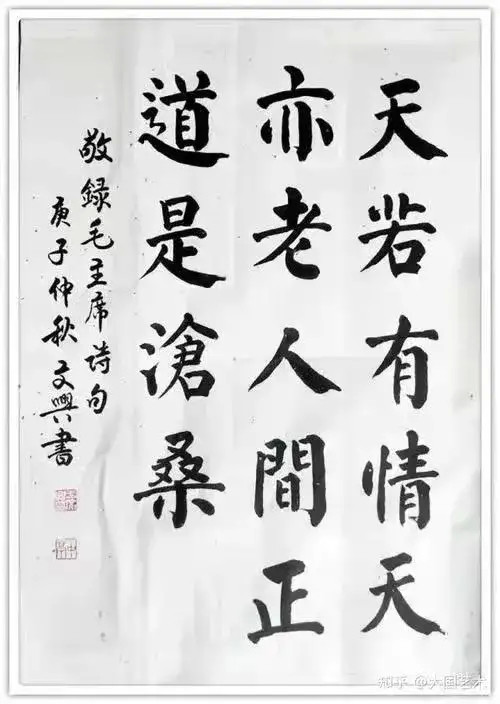 天若有情天
亦老人間正
道是滄桑
敬録毛主席詩句
庚子仲秋文興書
知乎 @大国艺术